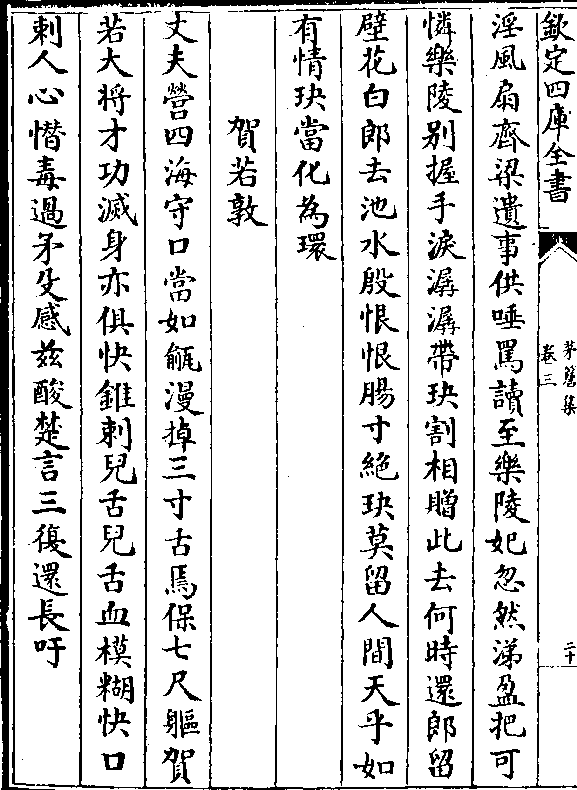 欽定四庫全書
茅簷集
卷三
二十
淫風扇齊梁遺事供唾罵讀至樂陵妃忽然涕盈把可
憐樂陵别握手淚潺潺帶玦割相贈此去何時還郎留
壁花白郎去池水殷恨恨腸寸絶玦莫留人間天乎如
有情玦當化為環
賀若敦
丈夫營四海守口當如瓻漫掉三寸舌焉保七尺軀賀
若大将才功滅身亦俱快錐刺兒舌兒舌血模糊快口
刺人心憯毒過矛殳感兹酸楚言三復還長吁